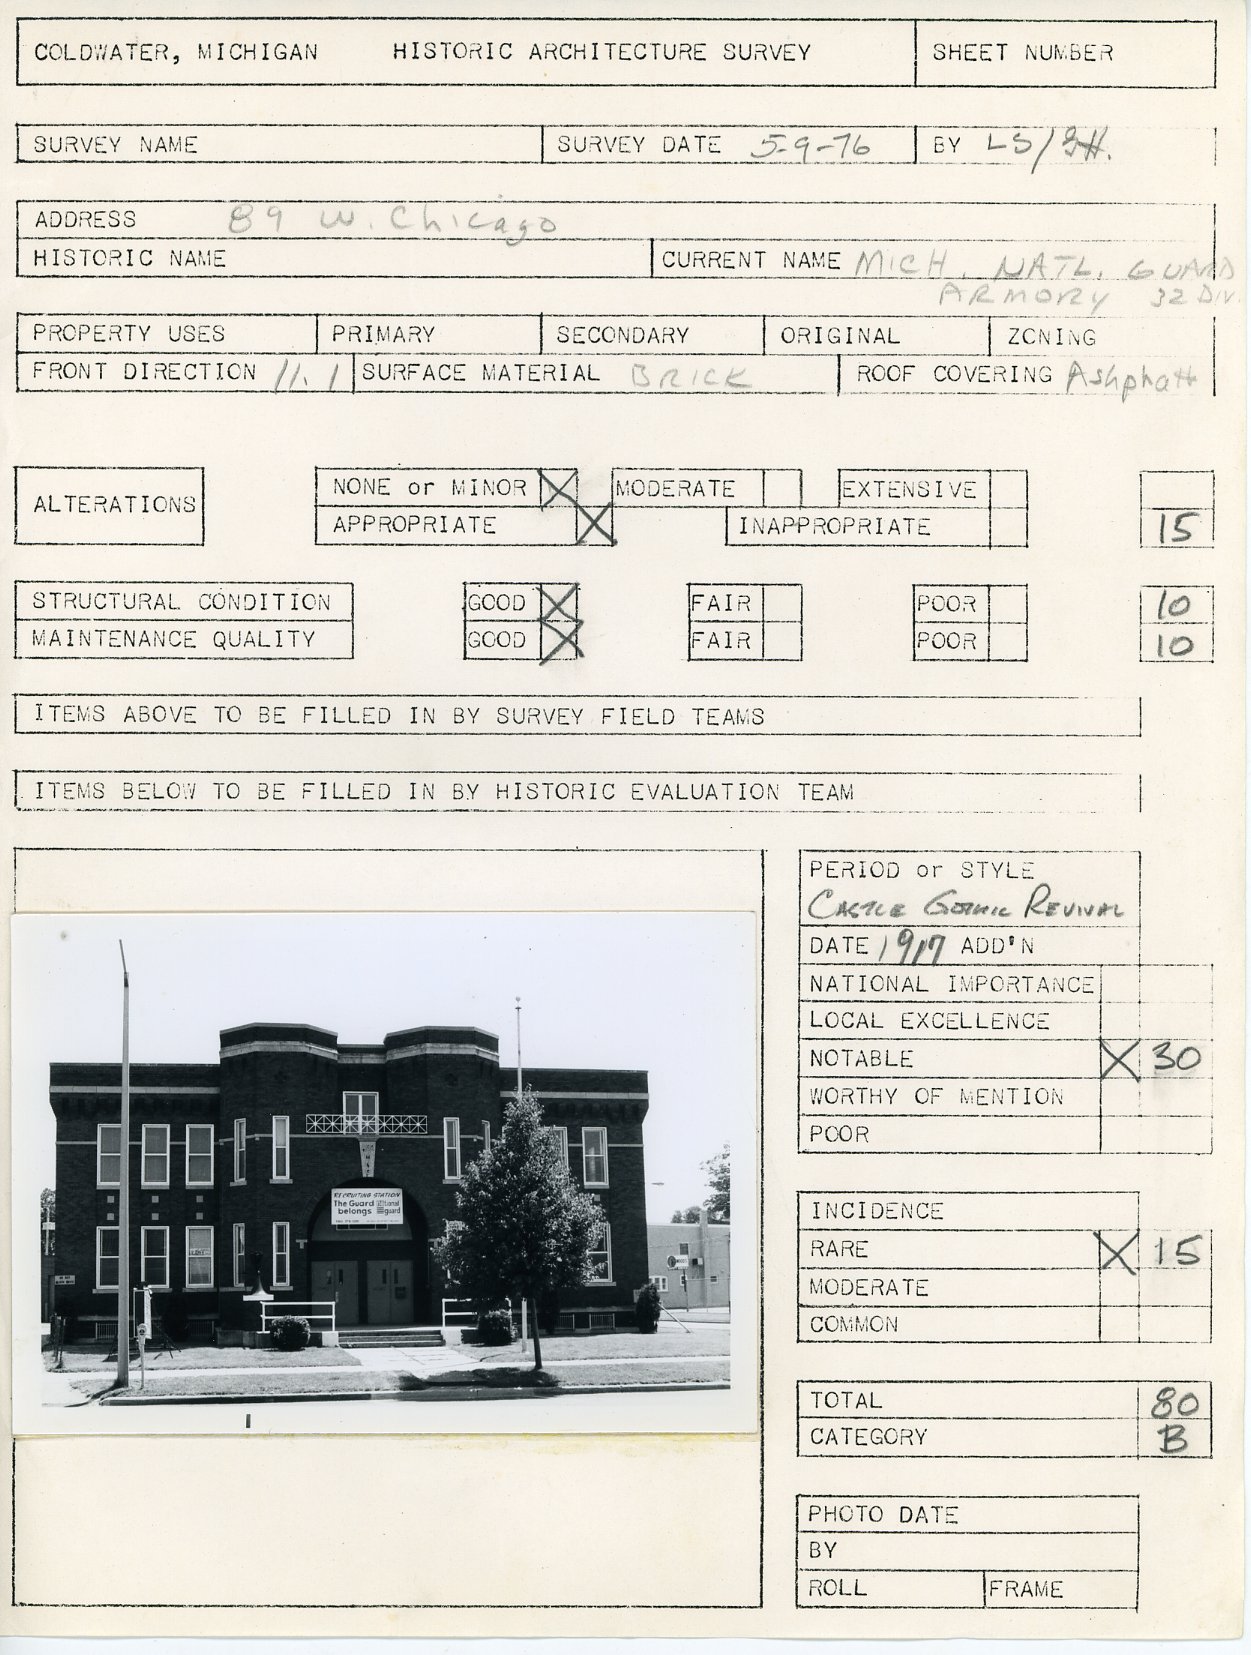 COLDWATER, MICHIGAN HISTORIC ARCHITECTURE SURVEY SHEET NUMBER
SURVEY NAME SURVEY DATE 5-9-76 BY LS/
ADDRESS 89 W. Chicago
HISTORIC NAME CURRENT NAME MICH. NATL. GUARD
ARMORY 32 DIV.
PROPERTY USES PRIMARY SECONDARY ORIGINAL ZONING
FRONT DIRECTION SURFACE MATERIAL BRICK ROOF COVERING Ashphalt
ALTERATIONS
NONE or MINOR X MODERATE EXTENSIVE
APPROPRIATE X INAPPROPRIATE 15
STRUCTURAL CONDITION GOOD X FAIR POOR 10
MAINTENANCE QUALITY GOOD X FAIR POOR 10
ITEMS ABOVE TO BE FILLED IN BY SURVEY FIELD TEAMS
ITEMS BELOW TO BE FILLED IN BY HISTORIC EVALUATION TEAM
RECRUITING STATION
The Guard
belongs guard
PERIOD or STYLE
CASTLE GOTHIC REVIVAL
DATE 1917 ADD'N
NATIONAL IMPORTANCE
LOCAL EXCELLENCE
NOTABLE X 30
WORTHY OF MENTION
POOR
INCIDENCE
RARE X 15
MODERATE
COMMON
TOTAL 80
CATEGORY B
PHOTO DATE
BY
ROLL FRAME